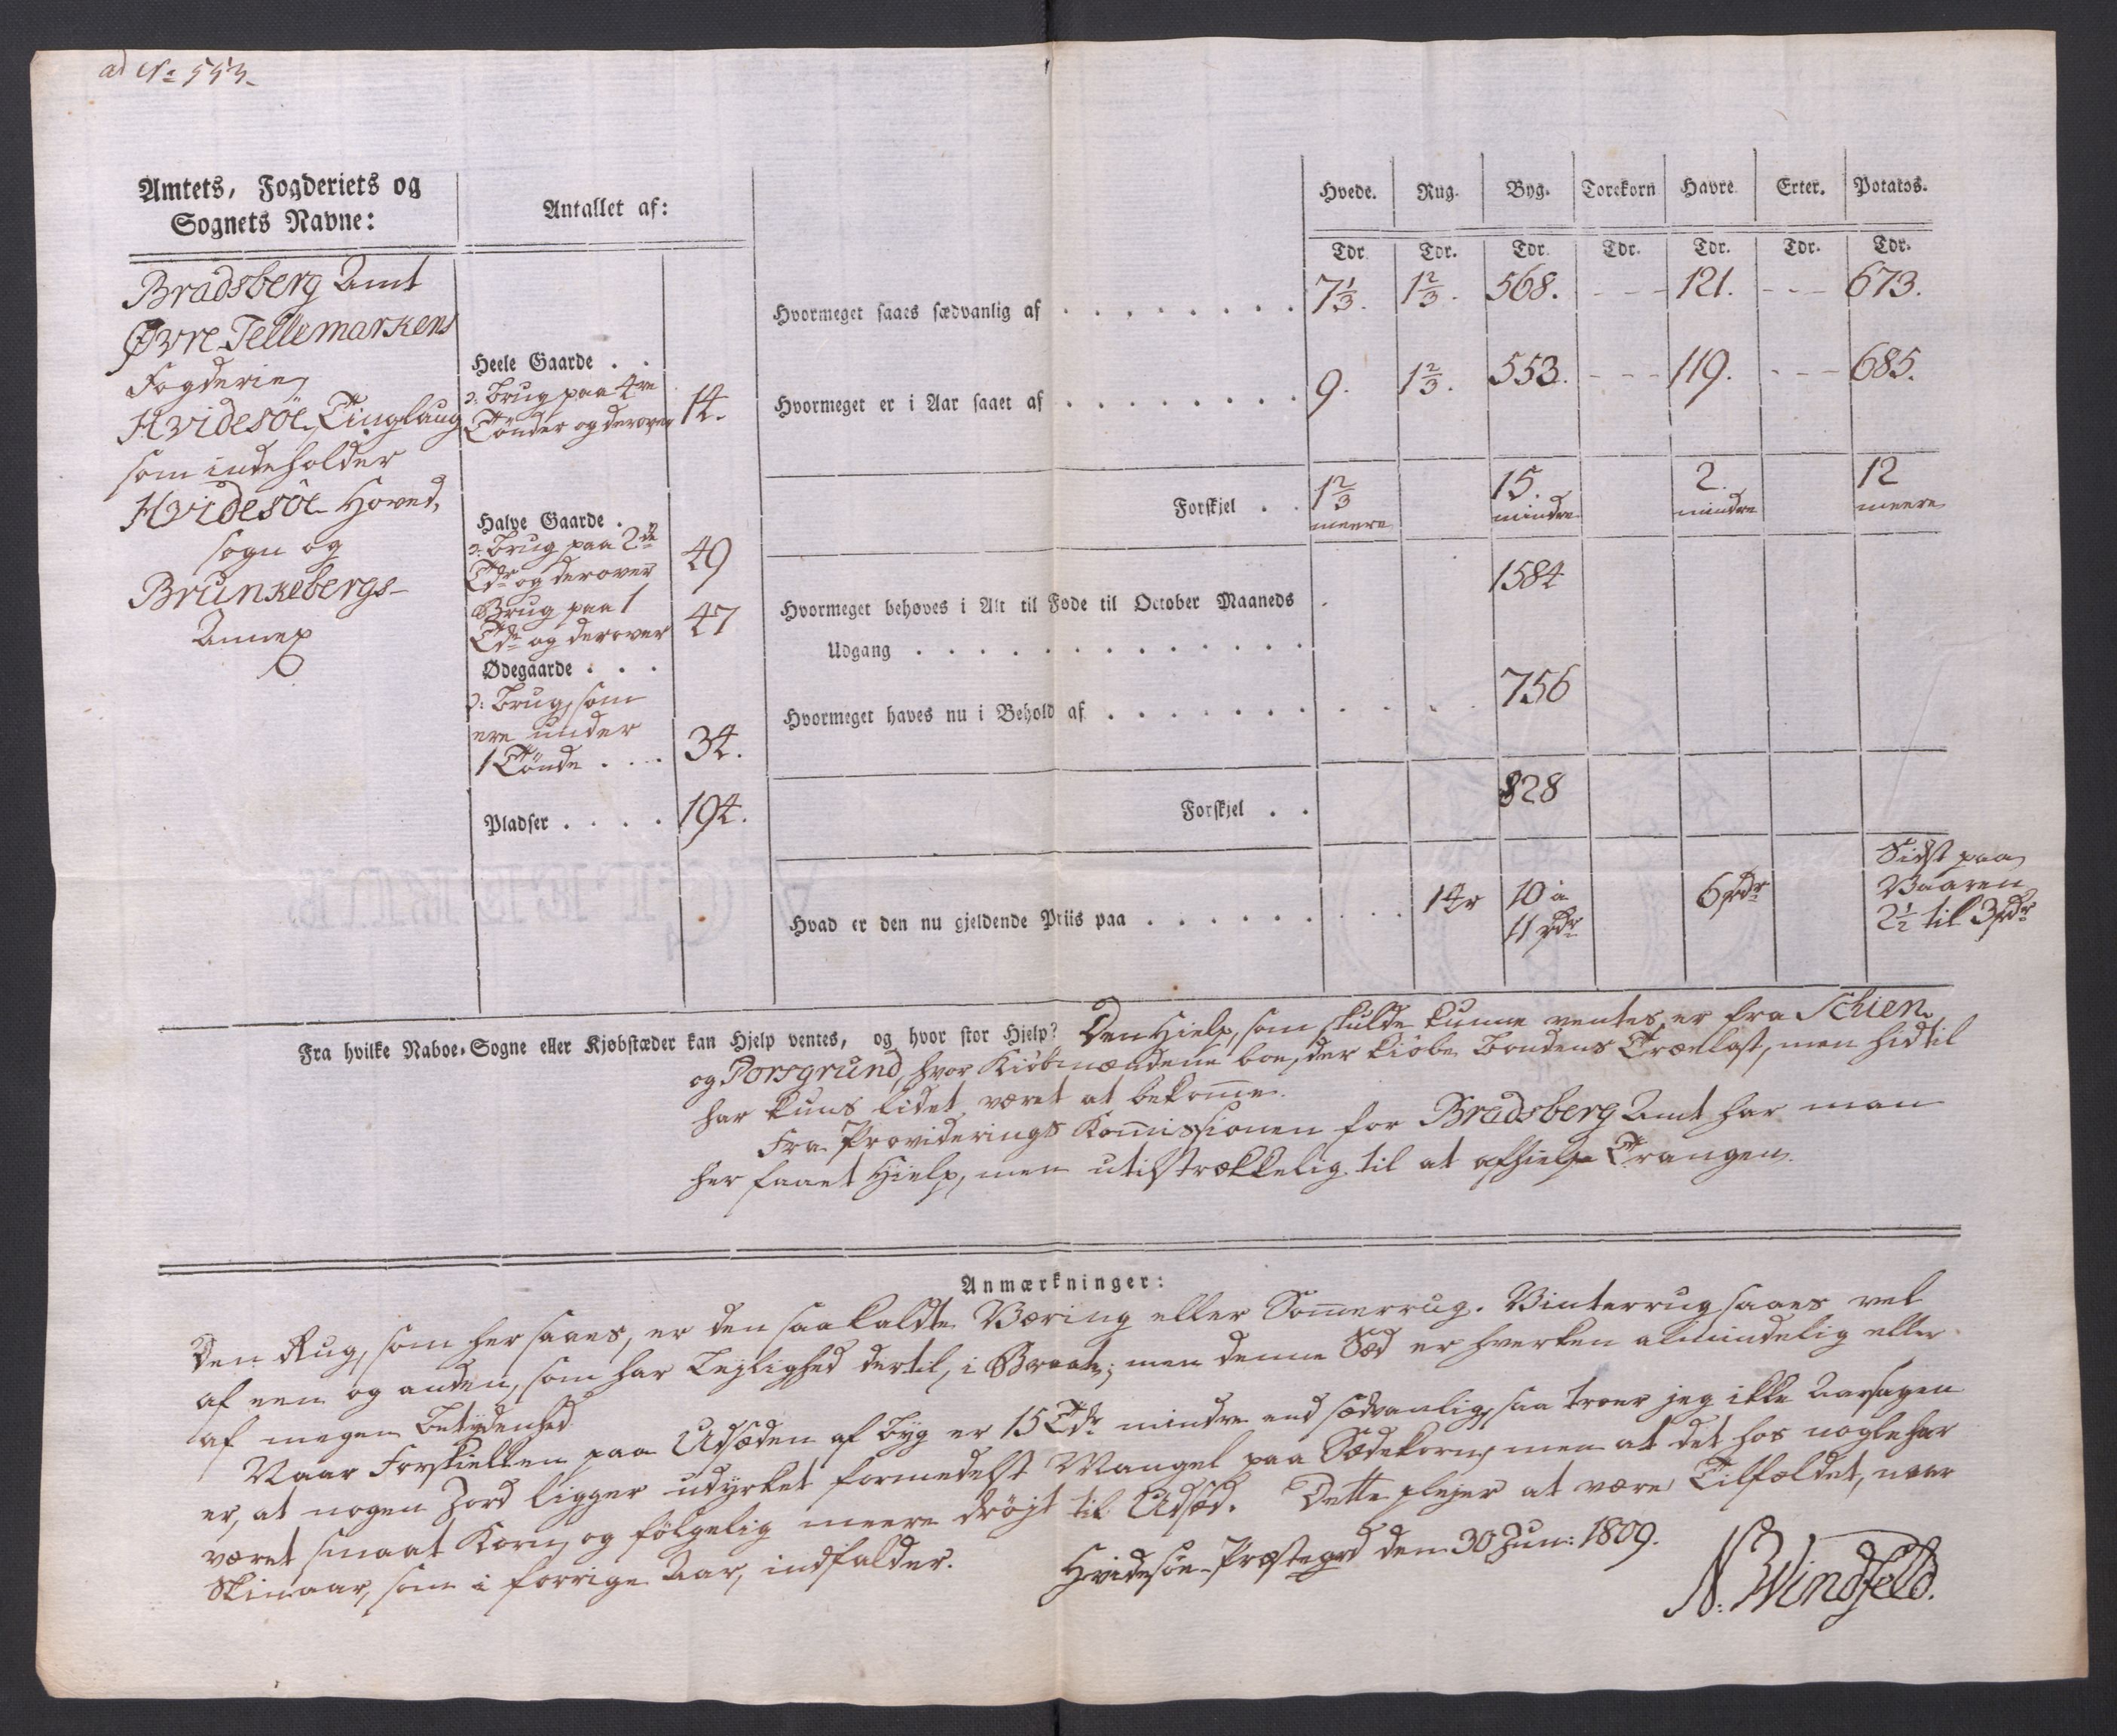 ad No 553.
Amtets, Fogderiets og
Sognets Navne:
Antallet af:
Hvede.
Rug.
Byg.
Torekorn
Havre.
Erter.
Potatos.
Tdr.
Tdr.
Tdr.
Tdr.
Tdr.
Tdr.
Tdr.
Bradsberg Amt
Øvre Tellemarkens
Fogderie,
Hvidesöe Tinglaug
som indeholder
Hvidesöe Hoved,
sogn og
Brunkebergs-
Annex
Heele Gaarde . .
ɔ: Brug paa 4re
Tönder og derover
14.
Halve Gaarde .
ɔ: Brug paa 2de
Tdr og derover
49
Brug paa 1
Tde og derover
47
Ødegaarde . . .
ɔ: Brug, som
ere under
1 Tönde . . .
34.
Pladser . . . .
194.
Hvormeget saaes sædvanlig af . . . . . . . . 7 1/3. 1 2/3. 568. - - - 121. - - - 673.
Hvormeget er i Aar saaet af . . . . . . . . 9. 1 2/3. 553. - - - 119. - - - 685.
Forskjel . . 1 2/3 15. 2. 12
meere mindre mindre meere
Hvormeget behøves i Alt til Føde til October Maaneds 1584
Udgang . . . . . . . . . . . . .
Hvormeget haves nu i Behold af . . . . . . . . . . . 756
Forskjel . . 828
Hvad er den nu gjeldende Priis paa . . . . . . . . . 14r 10 a 6 rdr Sidst paa
11 rdr Vaaren
2 1/2 til 3 rdr
Fra hvilke Naboe-Sogne eller Kjøbstæder kan Hjelp ventes, og hvor stor Hjelp? Den Hielp, som skulde kunne ventes, er fra Schien
og Porsgrund, hvor Kiöbmændene boe, der kiöbe Bondens Trælast, men hidtil
har kuns lidet været at bekomme.
Fra Providerings Kommissionen for Bradsberg Amt har man
her faaet Hielp, men utilstrækkelig til at afhielpe Trangen.
Anmærkninger:
Den Rug, som her saaes, er den saa kaldte Væring eller Sommerrug. Vinterrug saaes vel
af een og anden, som har Lejlighed dertil, i Braate; men denne Sæd er hverken almindelig eller
af megen Betydenhed.
Naar Forskiellen paa Udsæden af Byg er 15 Tdr mindre end sædvanlig, saa troer jeg ikke Aarsagen
er, at nogen Jord ligger udyrket formedelst Mangel paa Sædekorn, men at det hos nogle har
været smaat Korn, og fölgelig meere dröjt til Udsæd. Dette plejer at være Tilfældet, naar
Skinaar, som i forrige Aar, indfalder.
Hvidesöe Præstegrd den 30 Jun: 1809.
N. Windfeld.